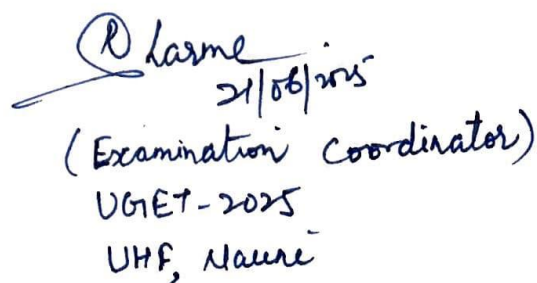 Sharma
21/06/2025
(Examination Coordinator)
UGET-2025
UHF, Nauni